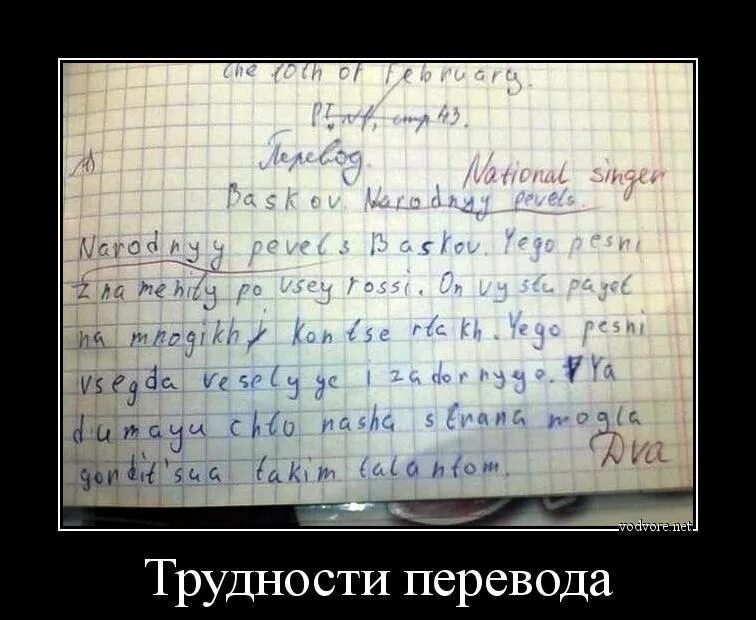 the 10th of February.
стр 43.
Перевод.
National singer
Baskov. Narodnyy pevets.
Narodnyy pevets Baskov. Yego pesni
znamenity po vsey rossi. On vystupayet
na mnogikh kontsertakh. Yego pesni
vsegda veselyye i zadornyye. Ya
dumayu chto nasha strana mogla
gordit'sua takim talantom.
Dva
vodvore.net
Трудности перевода